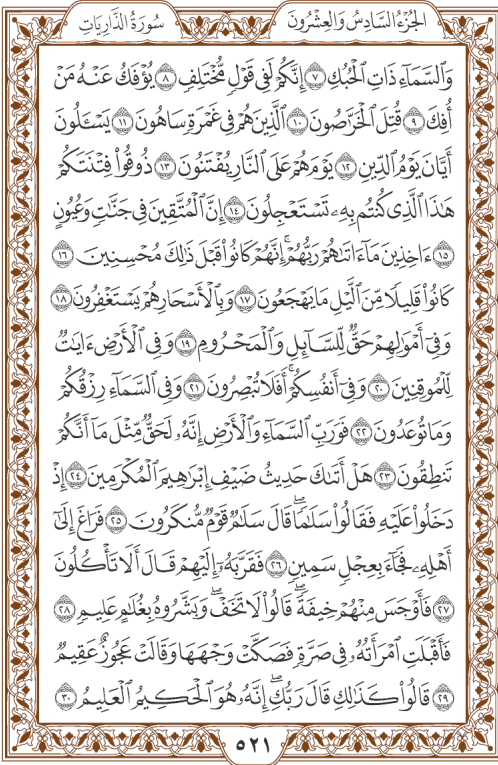 الجُزْءُ السَّادِسُ وَالعِشْرُونَ
سُورَةُ الذَّارِيَاتِ
وَٱلسَّمَآءِ ذَاتِ ٱلۡحُبُكِ ٧ إِنَّكُمۡ لَفِي قَوۡلٖ مُّخۡتَلِفٖ ٨ يُؤۡفَكُ عَنۡهُ مَنۡ
أُفِكَ ٩ قُتِلَ ٱلۡخَرَّٰصُونَ ١٠ ٱلَّذِينَ هُمۡ فِي غَمۡرَةٖ سَاهُونَ ١١ يَسۡـَٔلُونَ
أَيَّانَ يَوۡمُ ٱلدِّينِ ١٢ يَوۡمَ هُمۡ عَلَى ٱلنَّارِ يُفۡتَنُونَ ١٣ ذُوقُواْ فِتۡنَتَكُمۡ
هَٰذَا ٱلَّذِي كُنتُم بِهِۦ تَسۡتَعۡجِلُونَ ١٤ إِنَّ ٱلۡمُتَّقِينَ فِي جَنَّٰتٖ وَعُيُونٍ
١٥ ءَاخِذِينَ مَآ ءَاتَىٰهُمۡ رَبُّهُمۡۚ إِنَّهُمۡ كَانُواْ قَبۡلَ ذَٰلِكَ مُحۡسِنِينَ ١٦
كَانُواْ قَلِيلٗا مِّنَ ٱلَّيۡلِ مَا يَهۡجَعُونَ ١٧ وَبِٱلۡأَسۡحَارِ هُمۡ يَسۡتَغۡفِرُونَ ١٨
وَفِيٓ أَمۡوَٰلِهِمۡ حَقّٞ لِّلسَّآئِلِ وَٱلۡمَحۡرُومِ ١٩ وَفِي ٱلۡأَرۡضِ ءَايَٰتٞ
لِّلۡمُوقِنِينَ ٢٠ وَفِيٓ أَنفُسِكُمۡۚ أَفَلَا تُبۡصِرُونَ ٢١ وَفِي ٱلسَّمَآءِ رِزۡقُكُمۡ
وَمَا تُوعَدُونَ ٢٢ فَوَرَبِّ ٱلسَّمَآءِ وَٱلۡأَرۡضِ إِنَّهُۥ لَحَقّٞ مِّثۡلَ مَآ أَنَّكُمۡ
تَنطِقُونَ ٢٣ هَلۡ أَتَىٰكَ حَدِيثُ ضَيۡفِ إِبۡرَٰهِيمَ ٱلۡمُكۡرَمِينَ ٢٤ إِذۡ
دَخَلُواْ عَلَيۡهِ فَقَالُواْ سَلَٰمٗاۖ قَالَ سَلَٰمٞ قَوۡمٞ مُّنكَرُونَ ٢٥ فَرَاغَ إِلَىٰٓ
أَهۡلِهِۦ فَجَآءَ بِعِجۡلٖ سَمِينٖ ٢٦ فَقَرَّبَهُۥٓ إِلَيۡهِمۡ قَالَ أَلَا تَأۡكُلُونَ
٢٧ فَأَوۡجَسَ مِنۡهُمۡ خِيفَةٗۖ قَالُواْ لَا تَخَفۡۖ وَبَشَّرُوهُ بِغُلَٰمٍ عَلِيمٖ ٢٨
فَأَقۡبَلَتِ ٱمۡرَأَتُهُۥ فِي صَرَّةٖ فَصَكَّتۡ وَجۡهَهَا وَقَالَتۡ عَجُوزٌ عَقِيمٞ
٢٩ قَالُواْ كَذَٰلِكِ قَالَ رَبُّكِۖ إِنَّهُۥ هُوَ ٱلۡحَكِيمُ ٱلۡعَلِيمُ ٣٠
٥٢١